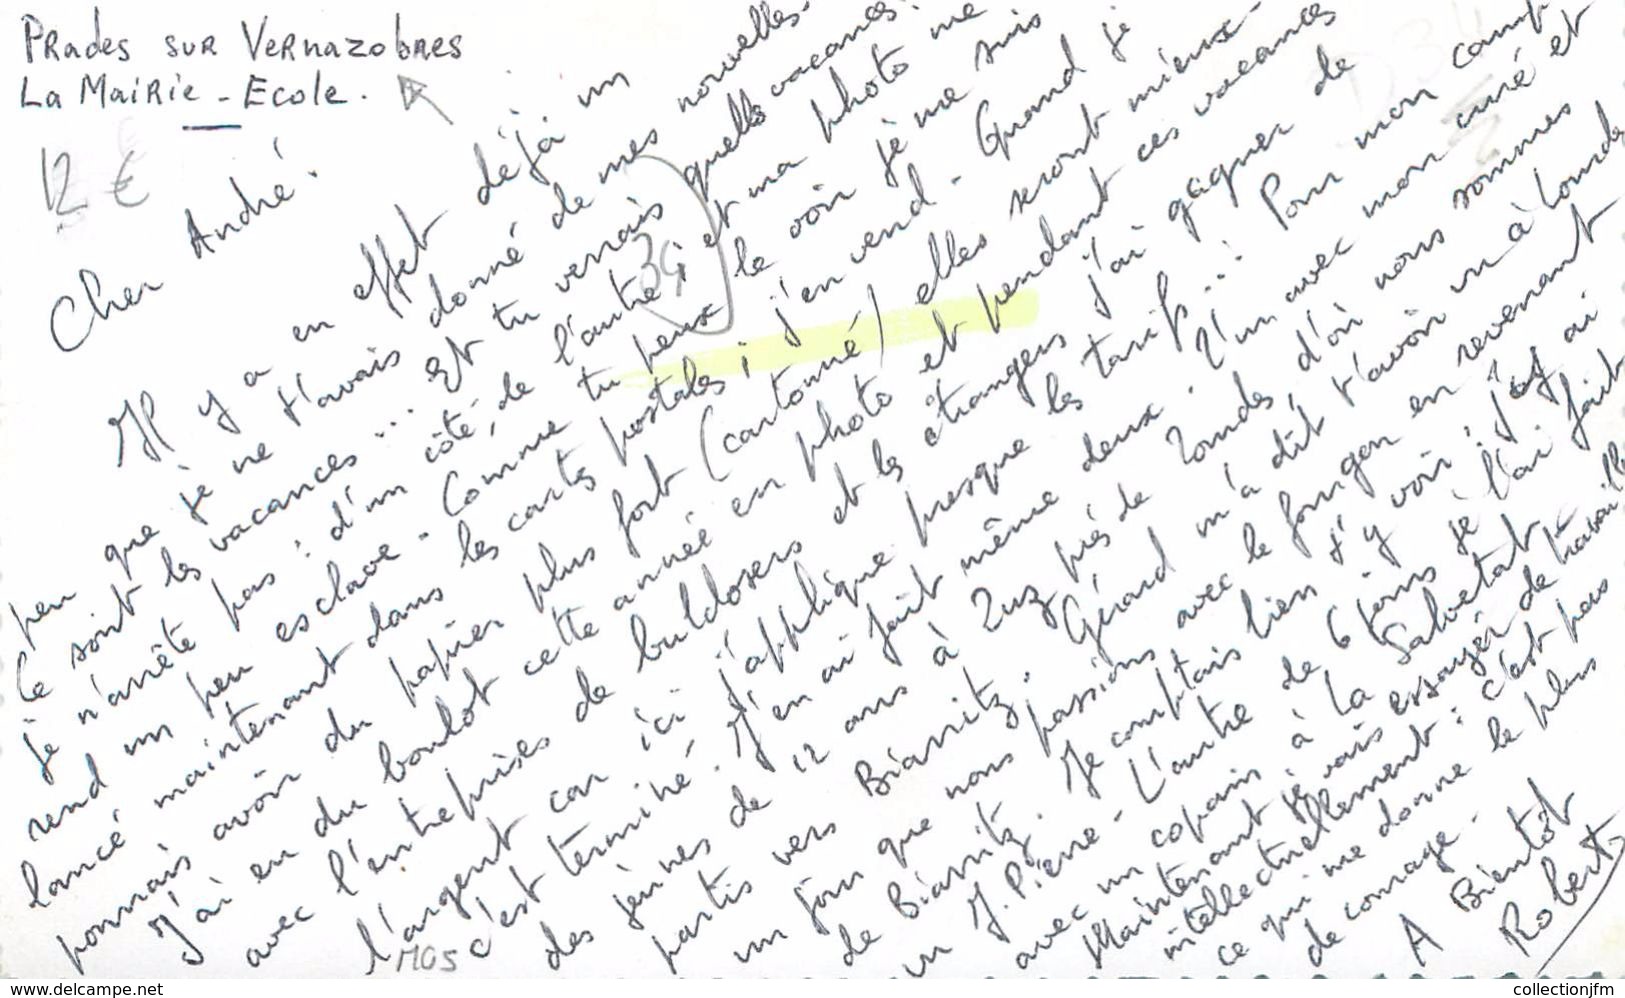 PRades sur Vernazobres
La Mairie - Ecole.
12 €
34
Cher André.
Il y a en effet déjà un
peu que je ne t'avais donné de mes nouvelles.
Ce sont les vacances... Et tu verrais quelles vacances.
je n'arrête pas : d'un côté, de l'autre ; et ma photo me
rend un peu esclave. Comme tu peux le voir je me suis
lancé maintenant dans les cartes postales ; j'en vend. Quand je
pourrais avoir du papier plus fort (cartonné) elles seront mieux.
J'ai eu du boulot cette année en photo et pendant ces vacances
avec l'entreprises de buldosers et les étrangers j'ai gagner de
l'argent car ici j'applique presque les tarifs...! Pour mon camp
c'est terminé. J'en ai fait même deux. L'un avec mon curé et
des jeunes de 12 ans à Luz près de Lourdes, d'où nous sommes
partis vers Biarritz. Gérard m'a dit t'avoir vu à Lourdes
un jour que nous passions avec le fourgon en revenant
de Biarritz. Je comptais bien t'y voir ; j'y ai
vu J. Pierre - L'autre de 6 jours je l'ai fait
avec un copain à La Salvetat
Maintenant je vais essayer de travailler
intellectuellement : c'est pas
ce qui me donne le plus
de courage.
A Bientôt
Robert.
MGS
www.delcampe.net
collectionjfm